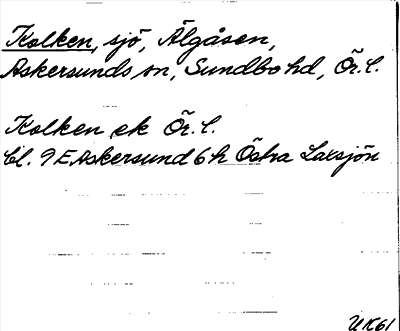 Kolken, sjö, Älgåsen,
Askersunds sn, Sundbo hd, Ör. l.
Kolken ek Ör. l.
bl. 9 E Askersund 6 h Östra Laxsjön
UK61